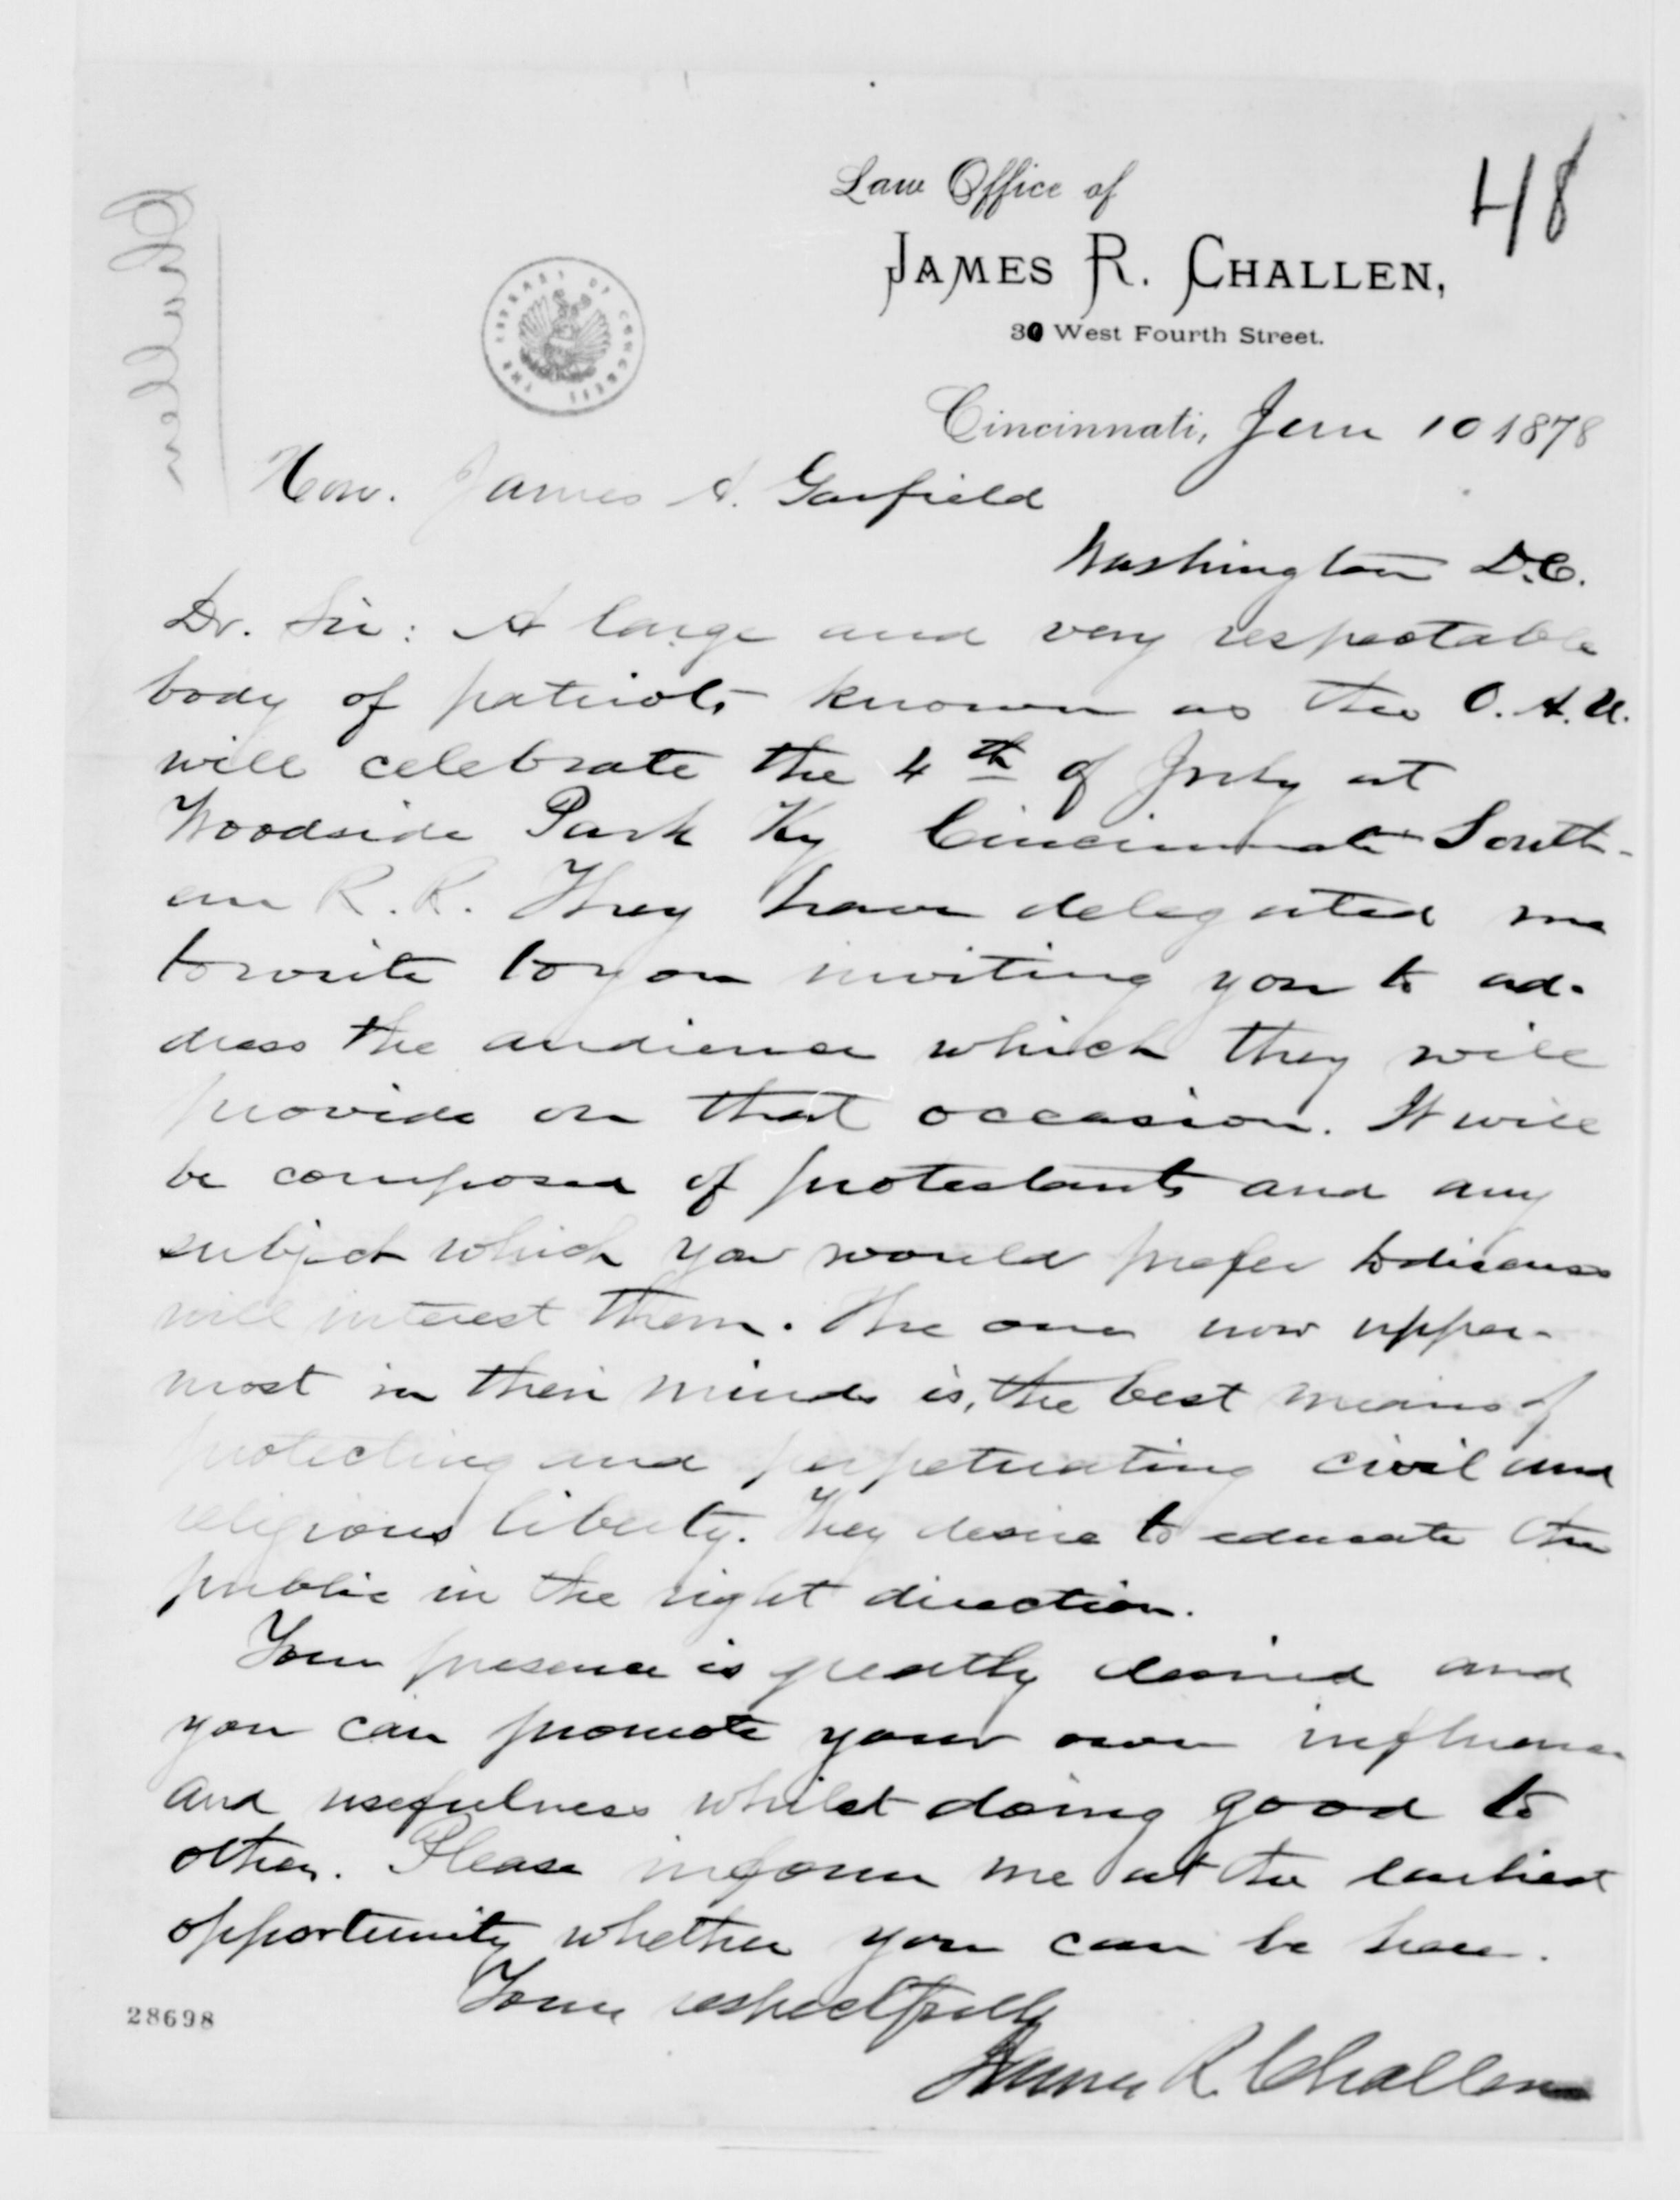 48
Law Office of
JAMES R. CHALLEN,
30 West Fourth Street.
THE LIBRARY OF CONGRESS
Challen
Cincinnati, Jun 10 1878
Hon. James A. Garfield
Washington D.C.
Dr. Sir: A large and very respectable
body of patriots known as the O. A. U.
will celebrate the 4th of July at
Woodside Park Ky Cincinnati South-
ern R. R. They have delegated me
to write to you inviting you to ad-
dress the audience which they will
provide on that occasion. It will
be composed of protestants and any
subject which you would prefer to discuss
will interest them. The one now upper-
most in their minds is, the best means of
protecting and perpetuating civil and
religious liberty. They desire to educate the
public in the right direction.
Your presence is greatly desired and
you can promote your own influence
and usefulness whilst doing good to
others. Please inform me at the earliest
opportunity whether you can be here.
Yours respectfully
James R. Challen
28698